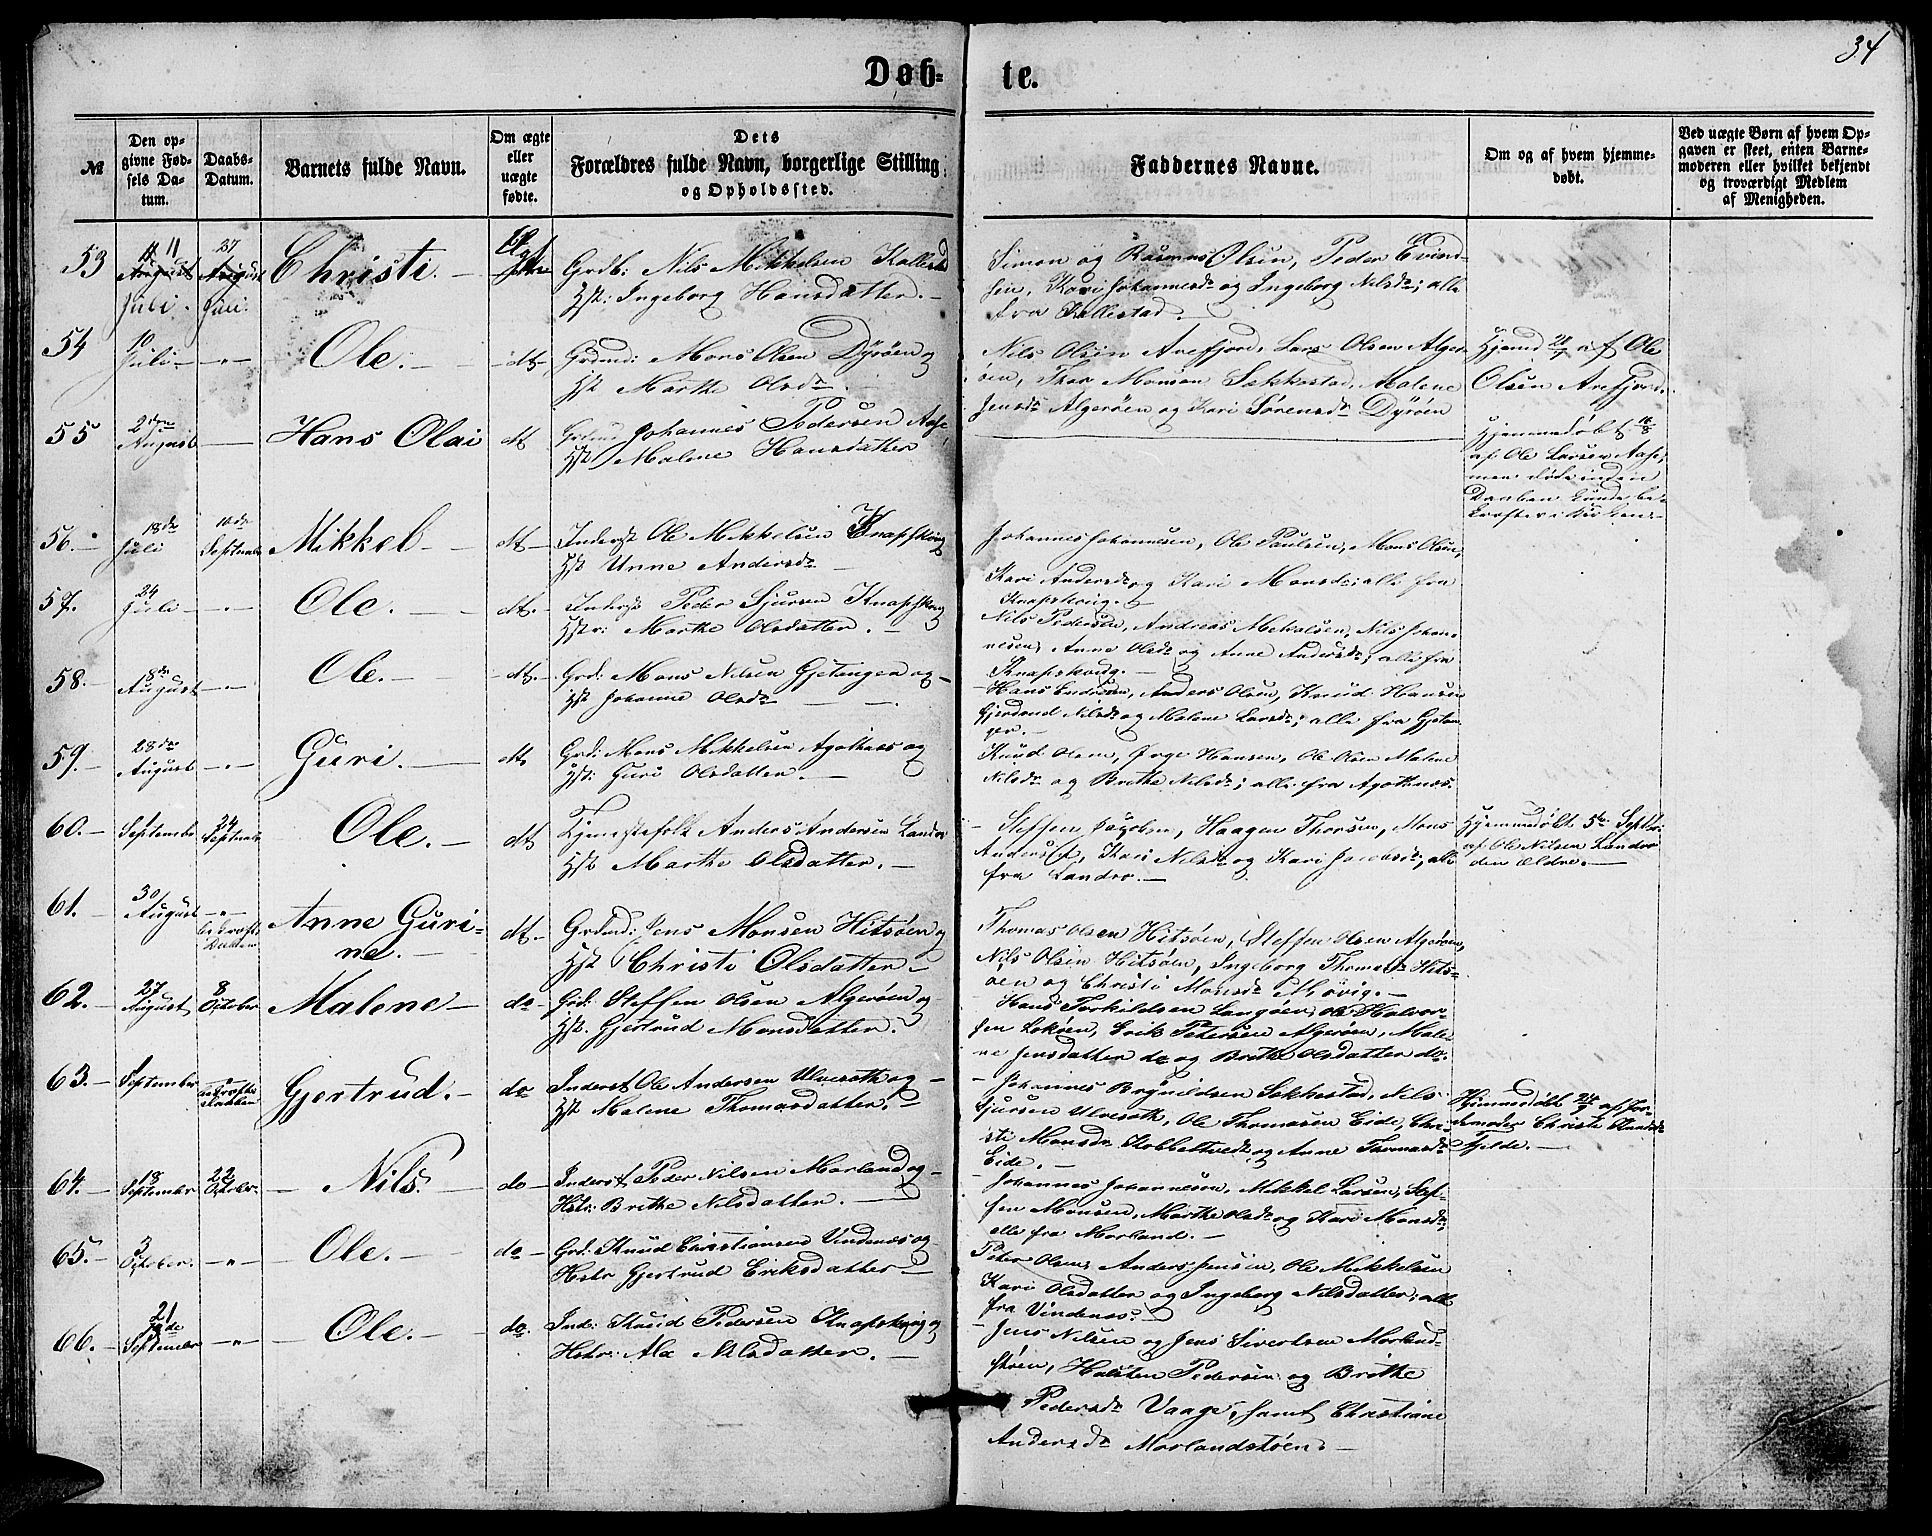 34
Døb-
te.
№
Den op-
givne Fød-
sels Da-
tum.
Daabs-
Datum.
Barnets fulde Navn.
Om ægte
eller
uægte
fødte.
Dets
Forældres fulde Navn, borgerlige Stilling
og Opholdssted.
Faddernes Navne.
Om og af hvem hjemme-
døbt.
Ved uægte Børn af hvem Op-
gaven er skeet, enten Barne-
moderen eller hvilket bekjendt
og troværdigt Medlem
af Menigheden.
53
11
August
Juli.
27
August
Juli.
Christi.
Grdb: Nils Mikkelsen
Hst: Ingeborg Hansdatter.
Simon og Rasmus Olsen, Peder Evind-
sen, Kari Johannesdr og Ingeborg Nilsdr; alle
fra Kallestad.
54
10
Juli
Ole.
dt
Grdmd: Mons Olsen Dyrøen og
Hst Marthe Olsdr
Nils Olsen Arefjord, Lars Olsen Alger-
øen, Thor Monsen Sekkestad, Malene
Jensdr Algerøen og Kari Sørensdr Dyrøen
Hjemd 28/7 af Ole
Olsen Arefjord.
55
2den
August
Hans Olai
dt
Johannes Pedersen
Hst Malene Hansdatter
Hjemmedøbt
af Ole Larsen
men døde inden
Daaben kunde be-
56.
18de
Juli
10de
Septembr
Mikkel
dt
Inderst Ole Mikkelsen Knapskoug
Hst Unne Andersdr
Johannes Johannesen, Ole Paulsen, Mons Olsen,
Kari Andersdr og Kari Monsdr; alle fra
Knapskoug.
57.
24
Juli
Ole.
dt.
Inderst Peder Sjursen Knapskoug
Hstr: Marthe Olsdatter.
Nils Pedersen, Andreas Mikalsen, Nils Johan-
nesen, Anne Olsdr og Anne Andersdr; alle fra
Knapskoug.
58.
8de
August
Ole.
dt.
Grd: Mons Nilsen Gjetangen og
Hst Johanne Olsdr
Hans Endresen, Anders Olsen, Knud Hansen
Gjertrud Nilsdr og Malene Larsdr; alle fra Gjetan-
gen.
59.
28de
August
Guri.
dt
Grd: Mons Mikkelsen Agothnes og
Hst: Guri Olsdatter.
Knud Olsen, Hansen, Ole Olsen Malene
Nilsdr og Brithe Nilsdr; alle fra Agothnæs.
60.
1
September
24
Septembr
Ole.
dt
Tjenestefolk Anders Andersen Landro
Hst Marthe Olsdatter.
Steffen Jacobsen, Haagen Thorsen, Mons
Anders, Kari Nilsdr og Kari Jacobsdr; alle
fra Landro.
Hjemmedøbt 5te Septbr
af Ole Nilsen Landro
den ældre.
61.
30
August
Anne Guri-
ne.
dt.
Grdmd: Jens Monsen Hitsøen og
Hst Christi Olsdatter
Thomas Olsen Hitsøen, Steffen Olsen Algerøen,
Nils Olsen Hitsøen, Ingeborg Thomasdr Hits-
øen og Christi Monsdr Møvig.
62.
27
August
8
October
Malene
do
Grd: Steffen Olsen Algerøen og
Hst: Gjertrud Monsdatter.
Hans Torkildsen Langøen, Ole Halvor-
sen Lokøen, Erik Petersen Algerøen, Male-
ne Jensdatter do og Brithe Olsdatter do.
63.
September
Gjertrud.
do
Inderst Ole Andersen Ulveseth og
Hst Malene Thomasdatter.
Johannes Brynildsen Sekkestad, Nils
Sjursen Ulveseth, Ole Thomasen Eide, Chri-
sti Monsdr Kobbeltvedt og Anne Thomasdr
Eide.
Hjemmedøbt 24/9 af Jor-
demoder Christi Knudsdr
Fjelde.
64.
19
September
22
October
Nils.
do
Inderst Peder Nilsen Morland og
Hstr: Brithe Nilsdatter.
Johannes Johannesen, Mikkel Larsen, Stef-
fen Monsen, Marthe Olsdr og Kari Monsdr
alle fra Morland.
65.
3
October.
Ole.
do
Grd: Knud Christiansen Vindenæs og
Hstr Gjertrud Eriksdatter
Peter Olsen, Anders Jensen, Ole Mikkelsen
Kari Olsdatter og Ingeborg Nilsdatter; alle
fra Vindenæs.
66.
21
de
September
Ole.
do.
Inds: Knud Pedersen Knapskoug og
Hstr: Ale Nilsdatter.
Jens Nilsen og Jens Sivertsen Morland-
støen, Halsten Pedersen og Brithe
Pedersdr Vaage, samt Christiane
Andersdr Morlandstøen.